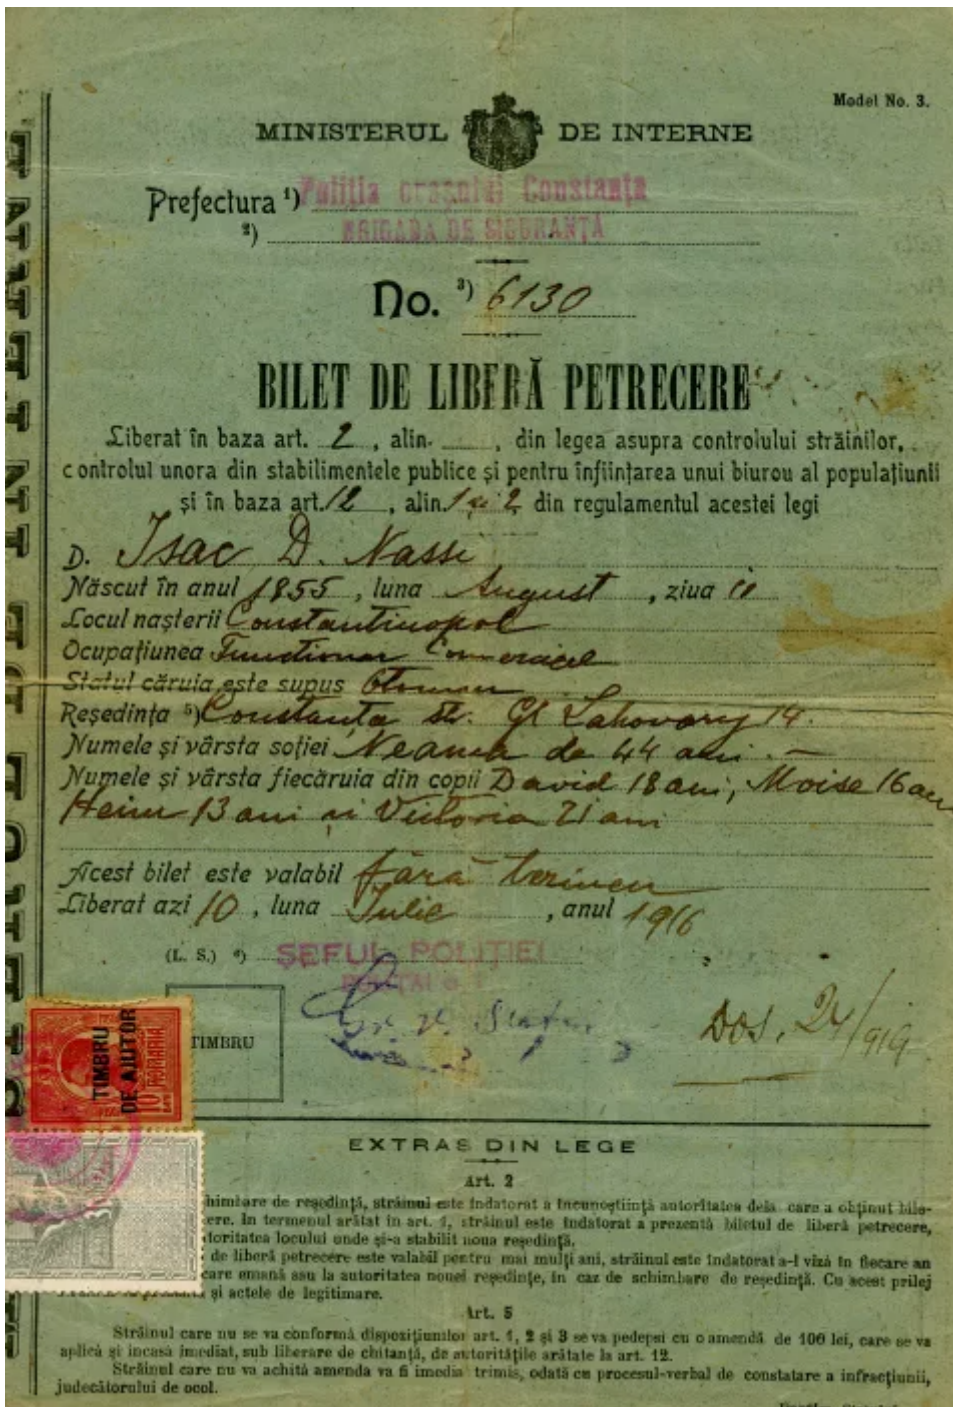 Model No. 3.
MINISTERUL DE INTERNE
Prefectura ¹) Poliția orașului Constanța
²) BRIGADA DE SIGURANȚĂ
No. ³) 6130
BILET DE LIBERĂ PETRECERE
Liberat în baza art. 2, alin. , din legea asupra controlului străinilor,
controlul unora din stabilimentele publice și pentru înființarea unui biurou al populațiunii
și în baza art. 12, alin. 1 și 2 din regulamentul acestei legi
D. Isac D. Nassi
Născut în anul 1855, luna August, ziua
Locul nașterii Constantinopol
Ocupațiunea Funcționar Comercial
Statul căruia este supus Otoman
Reședința ⁵) Constanța str. Gl Lahovary 14.
Numele și vârsta soției de 44 ani.—
Numele și vârsta fiecăruia din copii David 18 ani, Moise 16 ani
Heim 13 ani și Victoria 21 ani
Acest bilet este valabil fără termen
Liberat azi 10, luna Iulie, anul 1916
(L. S.) ⁶) ȘEFUL POLIȚIEI
TIMBRU
Dos. 24/919
TIMBRU
DE AJUTOR
ROMANIA
10
BANI
EXTRAS DIN LEGE
Art. 2
himbare de reședință, străinul este îndatorat a încunoștiință autoritatea dela care a obținut bile-
ere. In termenul arătat în art. 1, străinul este îndatorat a prezentà biletul de liberă petrecere,
toritatea locului unde și-a stabilit noua reședință.
de liberă petrecere este valabil pentru mai mulți ani, străinul este îndatorat a-l vizà în fiecare an
care emană sau la autoritatea nouei reședințe, în caz de schimbare de reședință. Cu acest prilej
și actele de legitimare.
Art. 5
Străinul care nu se va conformà dispozițiunilor art. 1, 2 și 3 se va pedepsi cu o amendă de 100 lei, care se va
aplicà și încasa imediat, sub liberare de chitanță, de autoritățile arătate la art. 12.
Străinul care nu va achità amenda va fi imediat trimis, odată cu procesul-verbal de constatare a infracțiunii,
judecătorului de ocol.